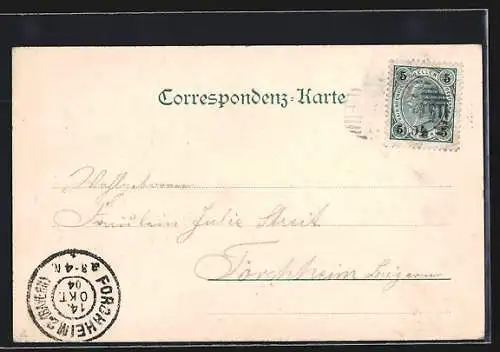 Correspondenz-Karte
5 HELLER 5
5 5
Wohlgeboren
Fräulein Julie Streit
Forchheim Bayern
FORCHHEIM 2 (BAYERN)
14.
OKT.
04
3-4 N.